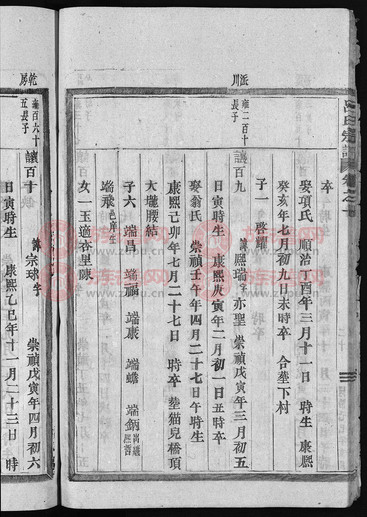 呂氏宗譜 卷之十
卒
娶項氏 順治丁酉年三月十一日 時生 康熙
癸亥年七月初九日未時卒 合塟下村
子一 啓耀
派川
雍二百十
長子
讓百九 諱熙瑞字亦聖 崇禎戊寅年三月初五
日寅時生 康熙庚寅年二月初一日丑時卒
娶翁氏 崇禎壬午年四月二十七日午時生
康熙己卯年七月二十七日 時卒 塟猫兒橋項
大壠腰結
子六 端昌 端福 端康 端蟾 端鈵
端飛邑庠生
女一玉適杏里陳
乾房
雍百六十
五長子
讓百十 諱宗球字 崇禎戊寅年四月初六
日寅時生 康熙乙巳年十一月二十三日 時